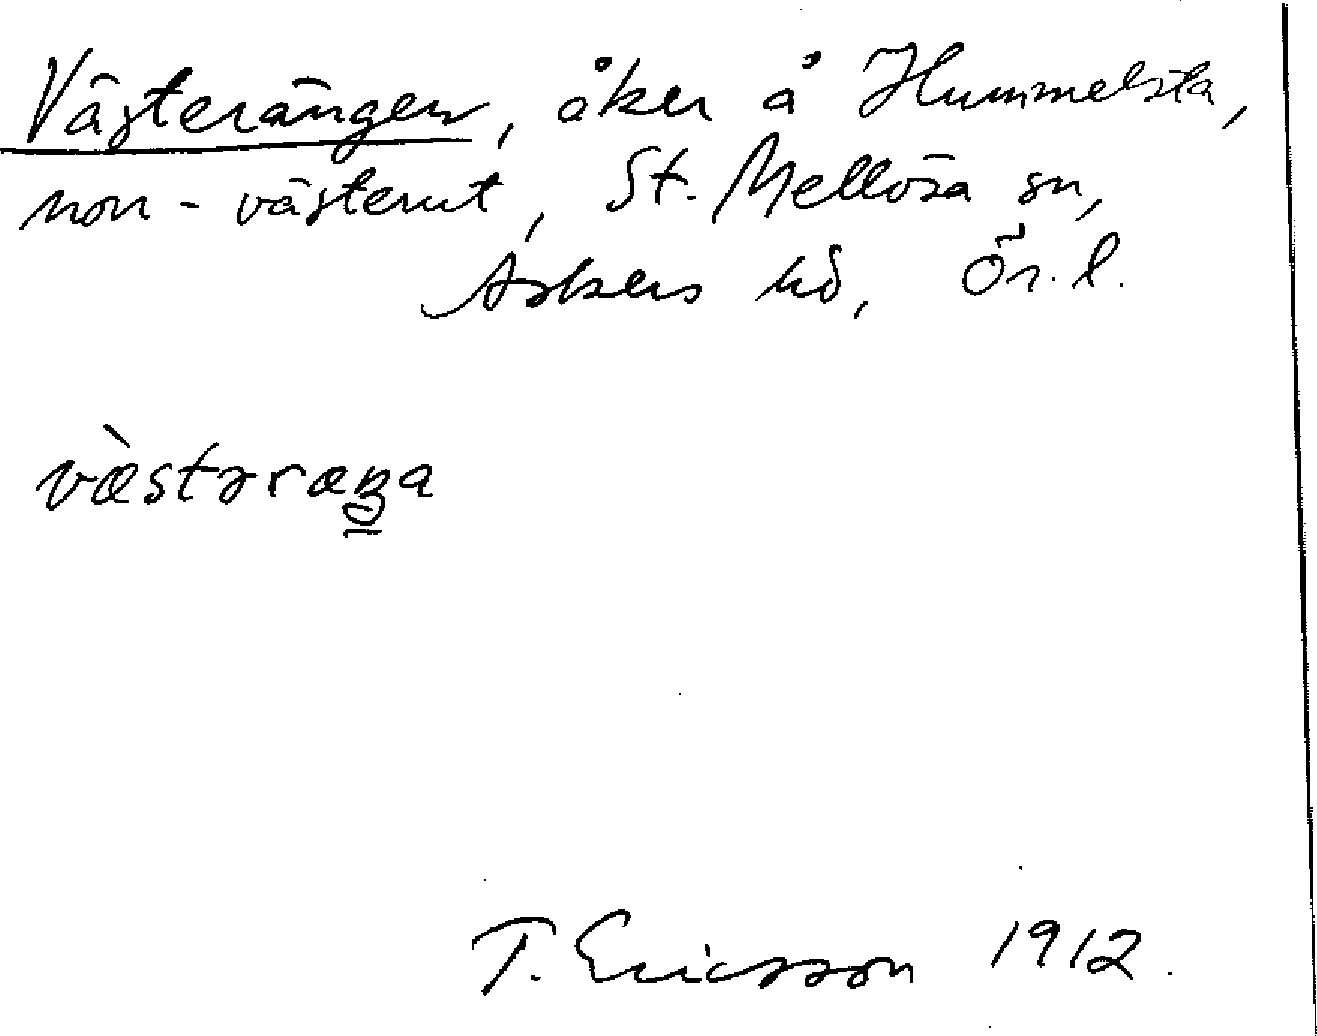 Västerängen, åker å Hummelsta,
norr-västerut, St. Mellösa sn,
Askers hd, Ör. l.
væ̀stəræŋa
T. Ericsson 1912.